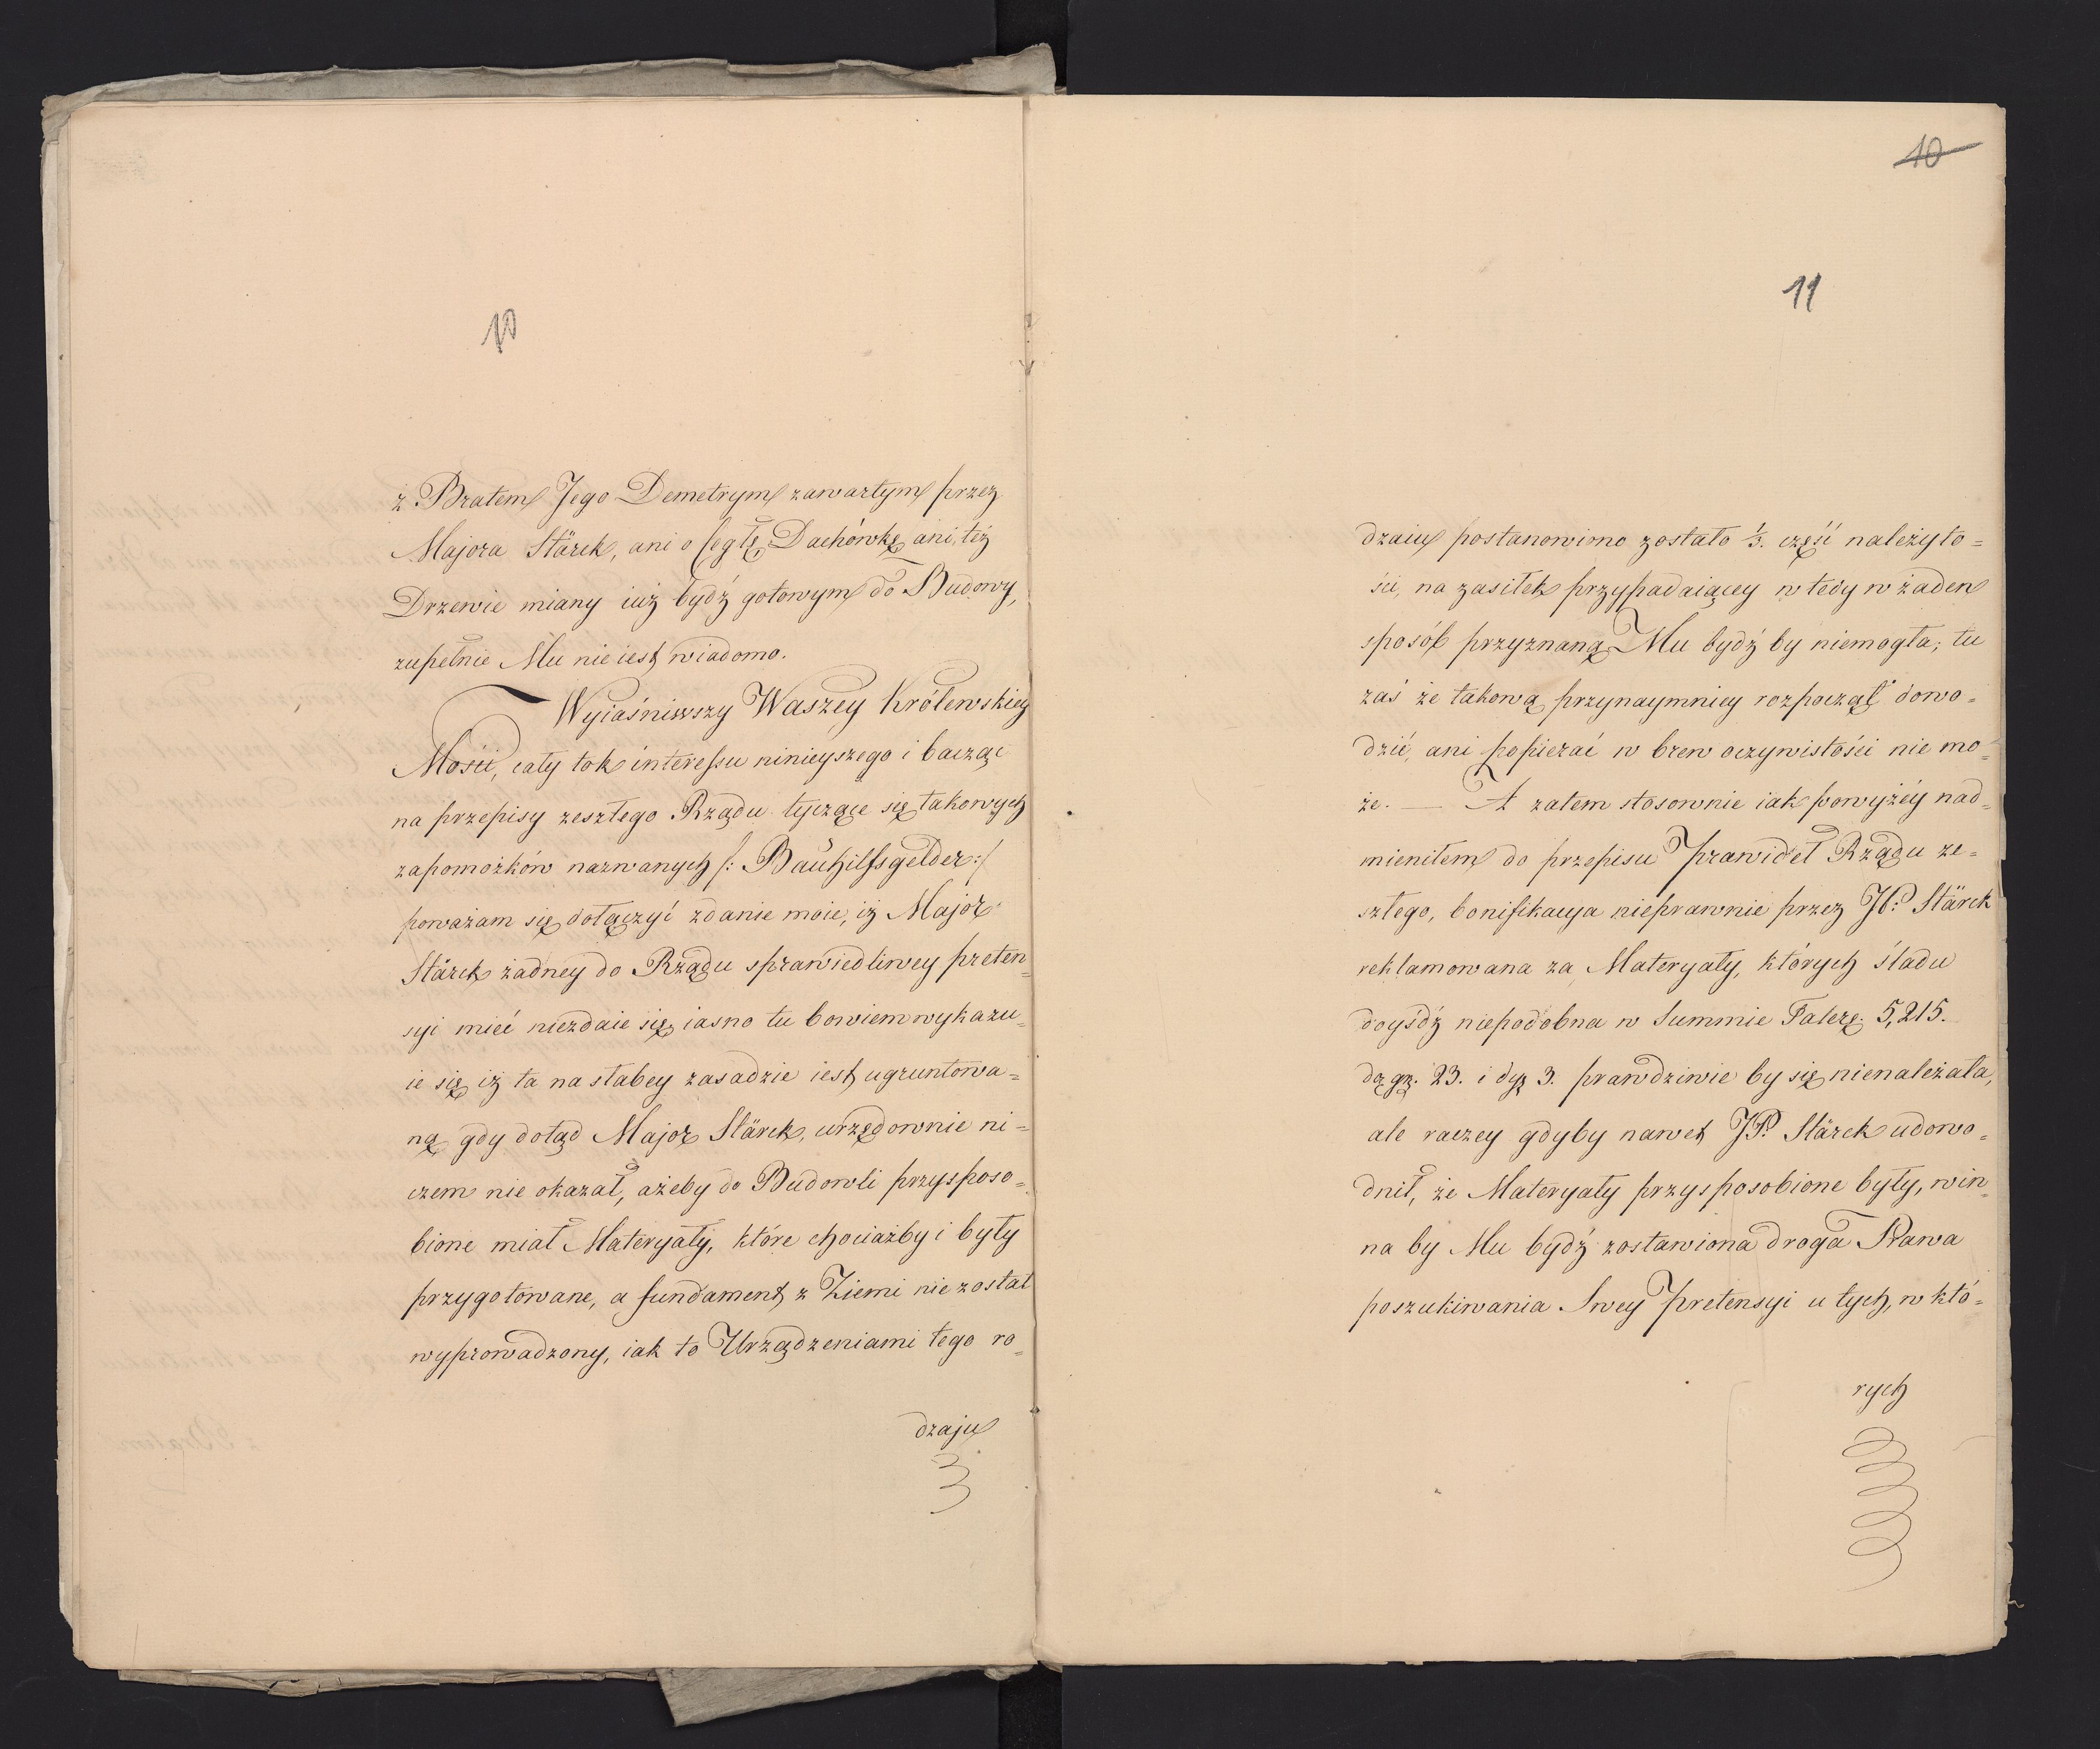 10
z Bratem Jego Demetrym zawartym przez
Majora Stärck, ani o Cegłę, Dachówkę ani, też
Drzewie miany iuż bydź gotowym do Budowy,
zupełnie Mu nie iest wiadomo.
Wyiaśniwszy Waszey Królewskiey
Mości, cały tok interessu ninieyszego i bacząc
na przepisy zeszłego Rządu tyczące się takowych
zapomożków nazwanych /: Bauhilfsgelder :/
poważam się dołączyć zdanie moie, iż Major
Stärck żadney do Rządu sprawiedliwey preten=
syi mieć niezdaie się, iasno tu bowiem wykazu=
ie się iż ta na słabey zasadzie iest ugruntowa=
ną gdy dotąd Major Stärck, urzędownie ni=
czem nie okazał, ażeby do Budowli przysposo=
bione miał Materyały, które chociażby i były
przygotowane, a fundament z Ziemi nie został
wyprowadzony, iak to Urządzeniami tego ro=
dzaju
10
11
dzaiu postanowimo zostało 1/3. część należyto=
ści, na zasiłek przypadaiącey w tedy w żaden
sposób przyznaną Mu bydź by niemogła; tu
zaś że takową przynaymniey rozpoczął dowo=
dzić, ani popierać w brew oczywistości nie mo=
że. — A zatem stosownie iak powyżéy nad=
mieniłem do przepisu Prawideł Rządu ze=
szłego, bonifikacya nieprawnie przez JP: Stärck
reklamowana za Materyały, których śladu
doyśdź niepodobna w Summie Talerę. 5,215.
dą gr. 23. i dyz 3. prawdziwie by się nienależała,
ale raczey gdyby nawet JP. Stärck udowo=
dnił, że Materyały przysposobione były, win=
na by Mu bydź zostawiona droga Prawa
poszukiwania Swey Pretensyi u tych, w któ=
rych